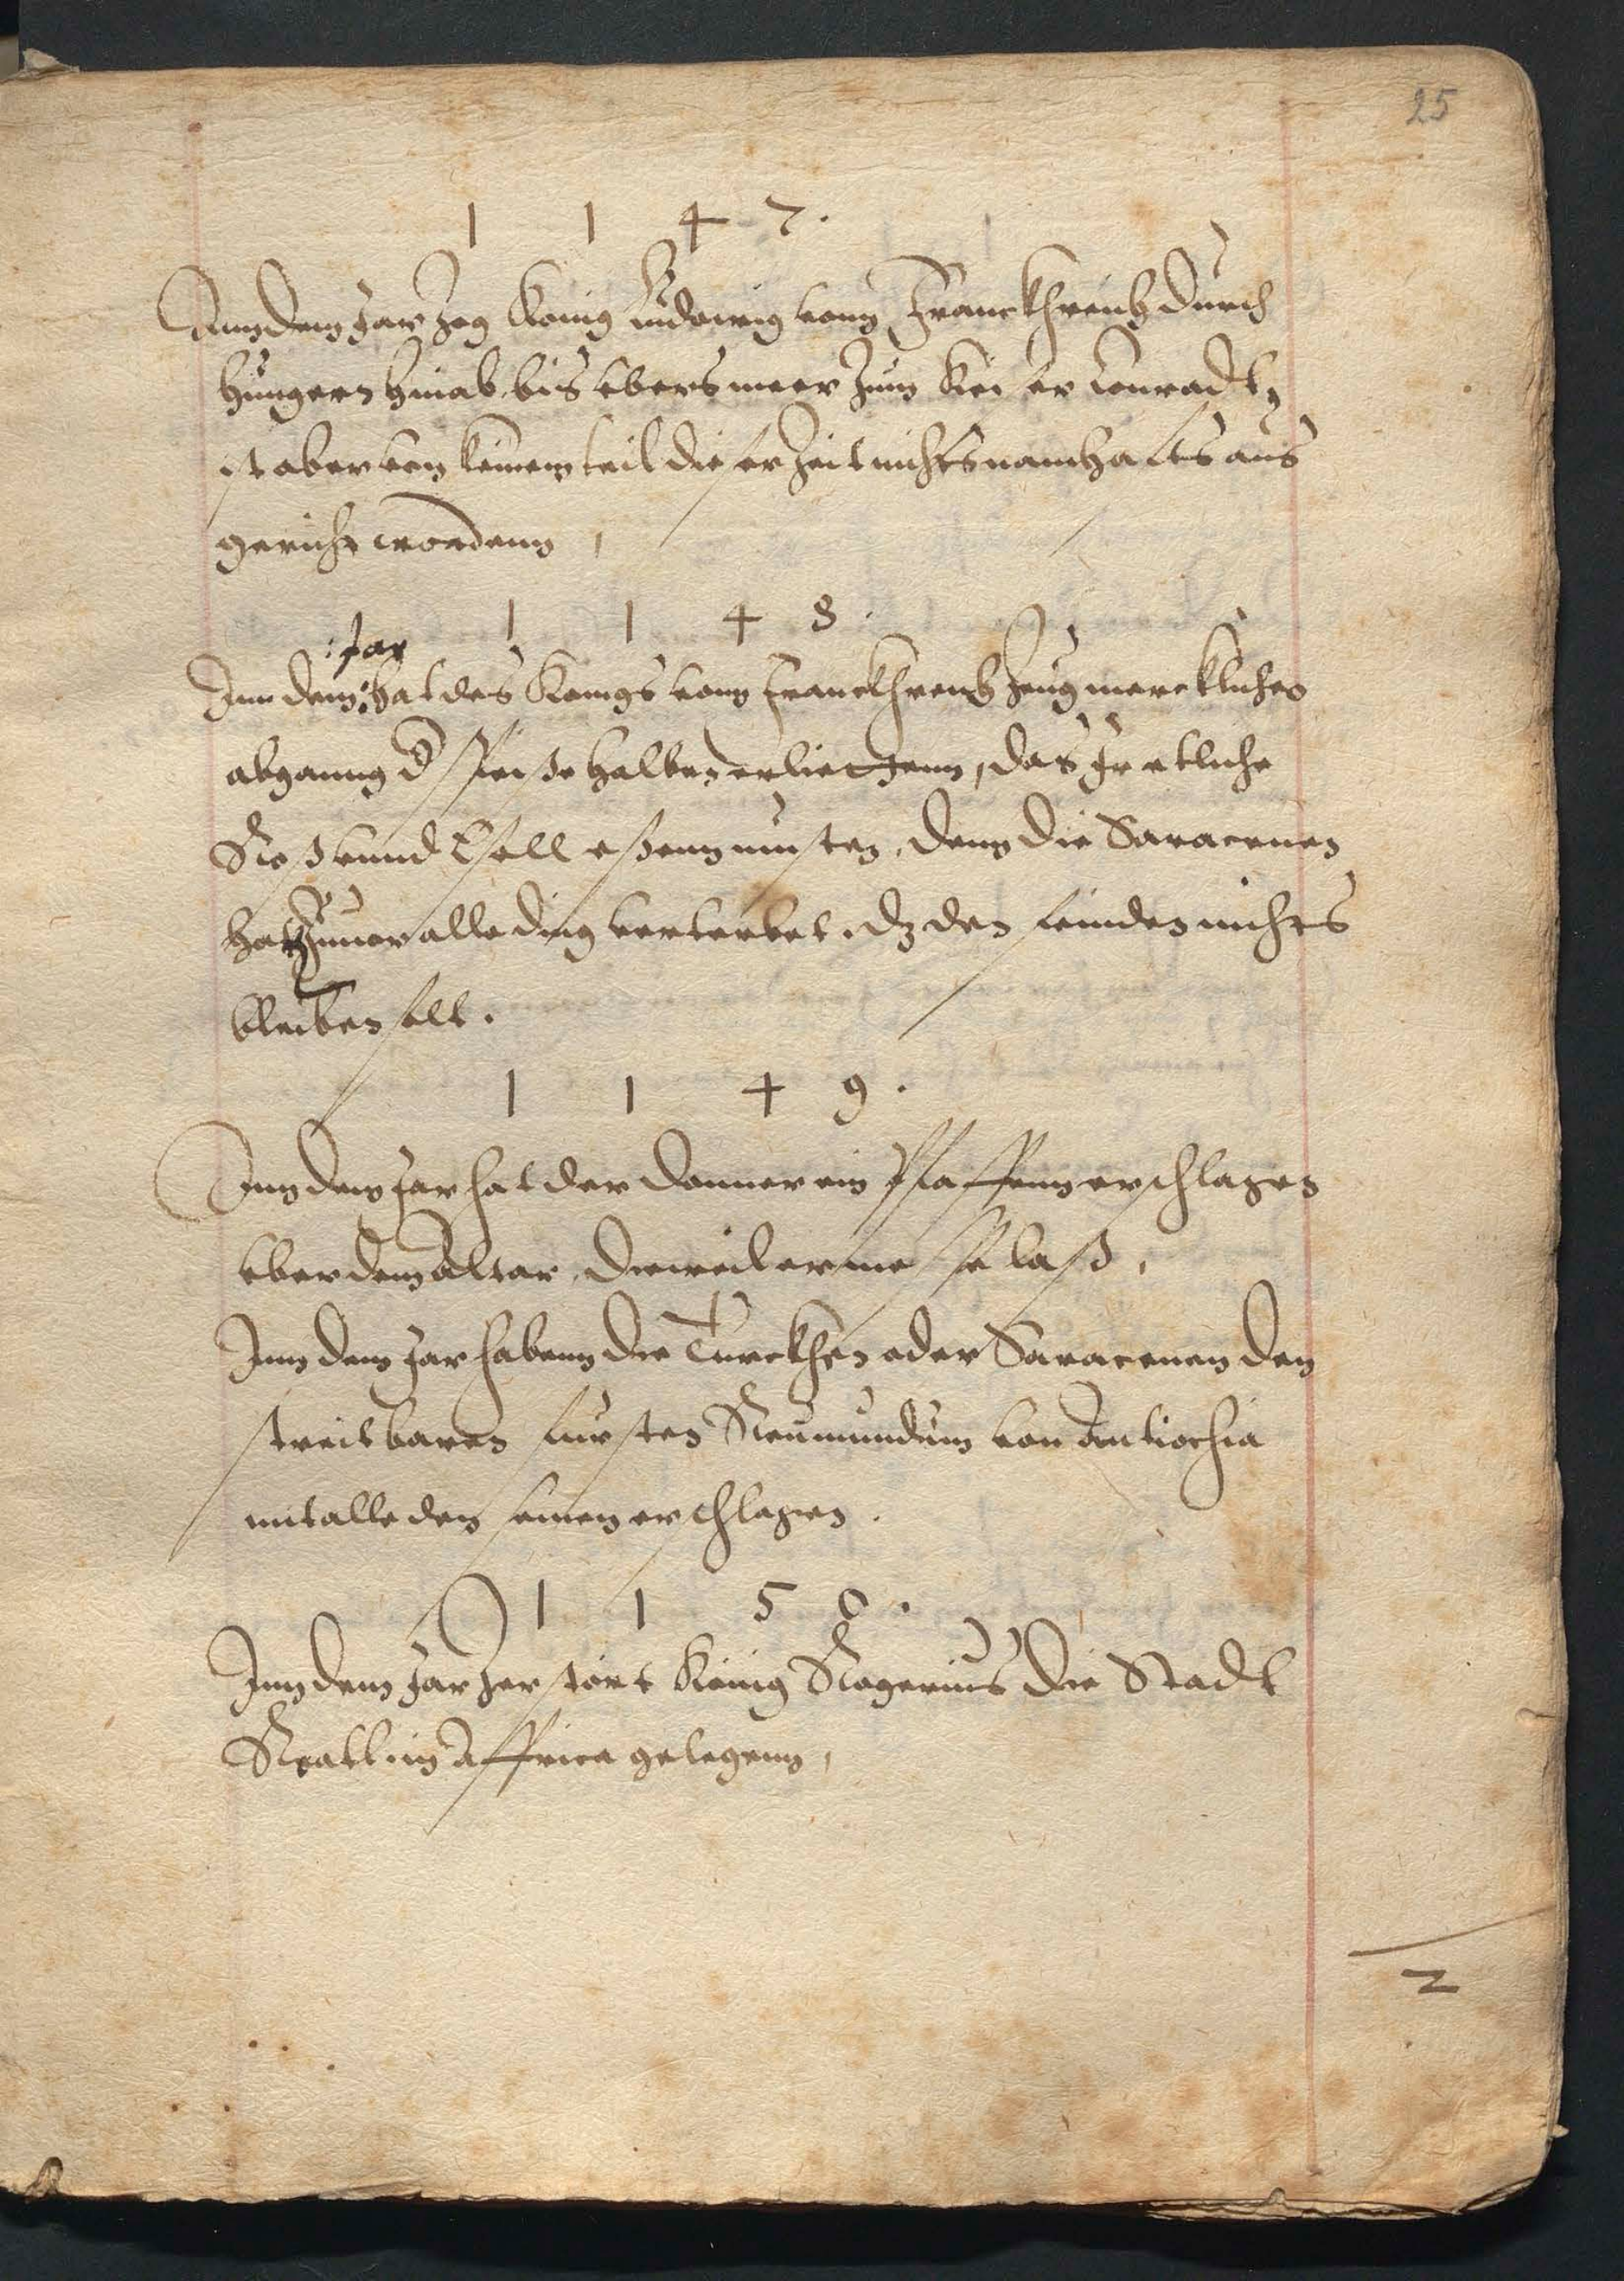 25
1 1 4 7.
Inn dem Jar zog König Ludowig vonn Franckhreich durch
Hungern hinab bis vbers meer zum Keiser Conradt,
ist aber von keinem teil dieser zeit nichts namhafts aus
gericht wordenn,
1 1 4 8.
:Jar
Inn dem: hat des Konigs vonn Franckhreich zeug mercklichen
abganng der speise halben erliettenn, das Ir etliche
Roß vnnd Esell essenn musten, denn die Saracenen
het zuuor alle ding verterbet, dz den feinden nichts
bleiben sollt.
1 1 4 9.
Inn dem Jar hat der donner ein Pfaffenn erschlagen
vber dem Altar, dieweil er messe laß,
Inn dem Jar habenn die Turckhen oder Saracenen den
streitbaren fursten Reumundum von Antiochia
mit alle den seinen erschlagen.
1 1 5 0.
Inn dem Jar zerstört König Rogerius die Stadt
in Affrica gelegenn,